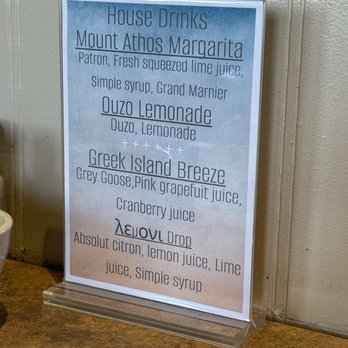 House Drinks
Mount Athos Margarita
Patron, Fresh squeezed lime juice,
Simple syrup, Grand Marnier
Ouzo Lemonade
Ouzo, Lemonade
+ + + + + +
Greek Island Breeze
Grey Goose,Pink grapefuit juice,
Cranberry juice
λεμονι Drop
Absolut citron, lemon juice, Lime
juice, Simple syrup